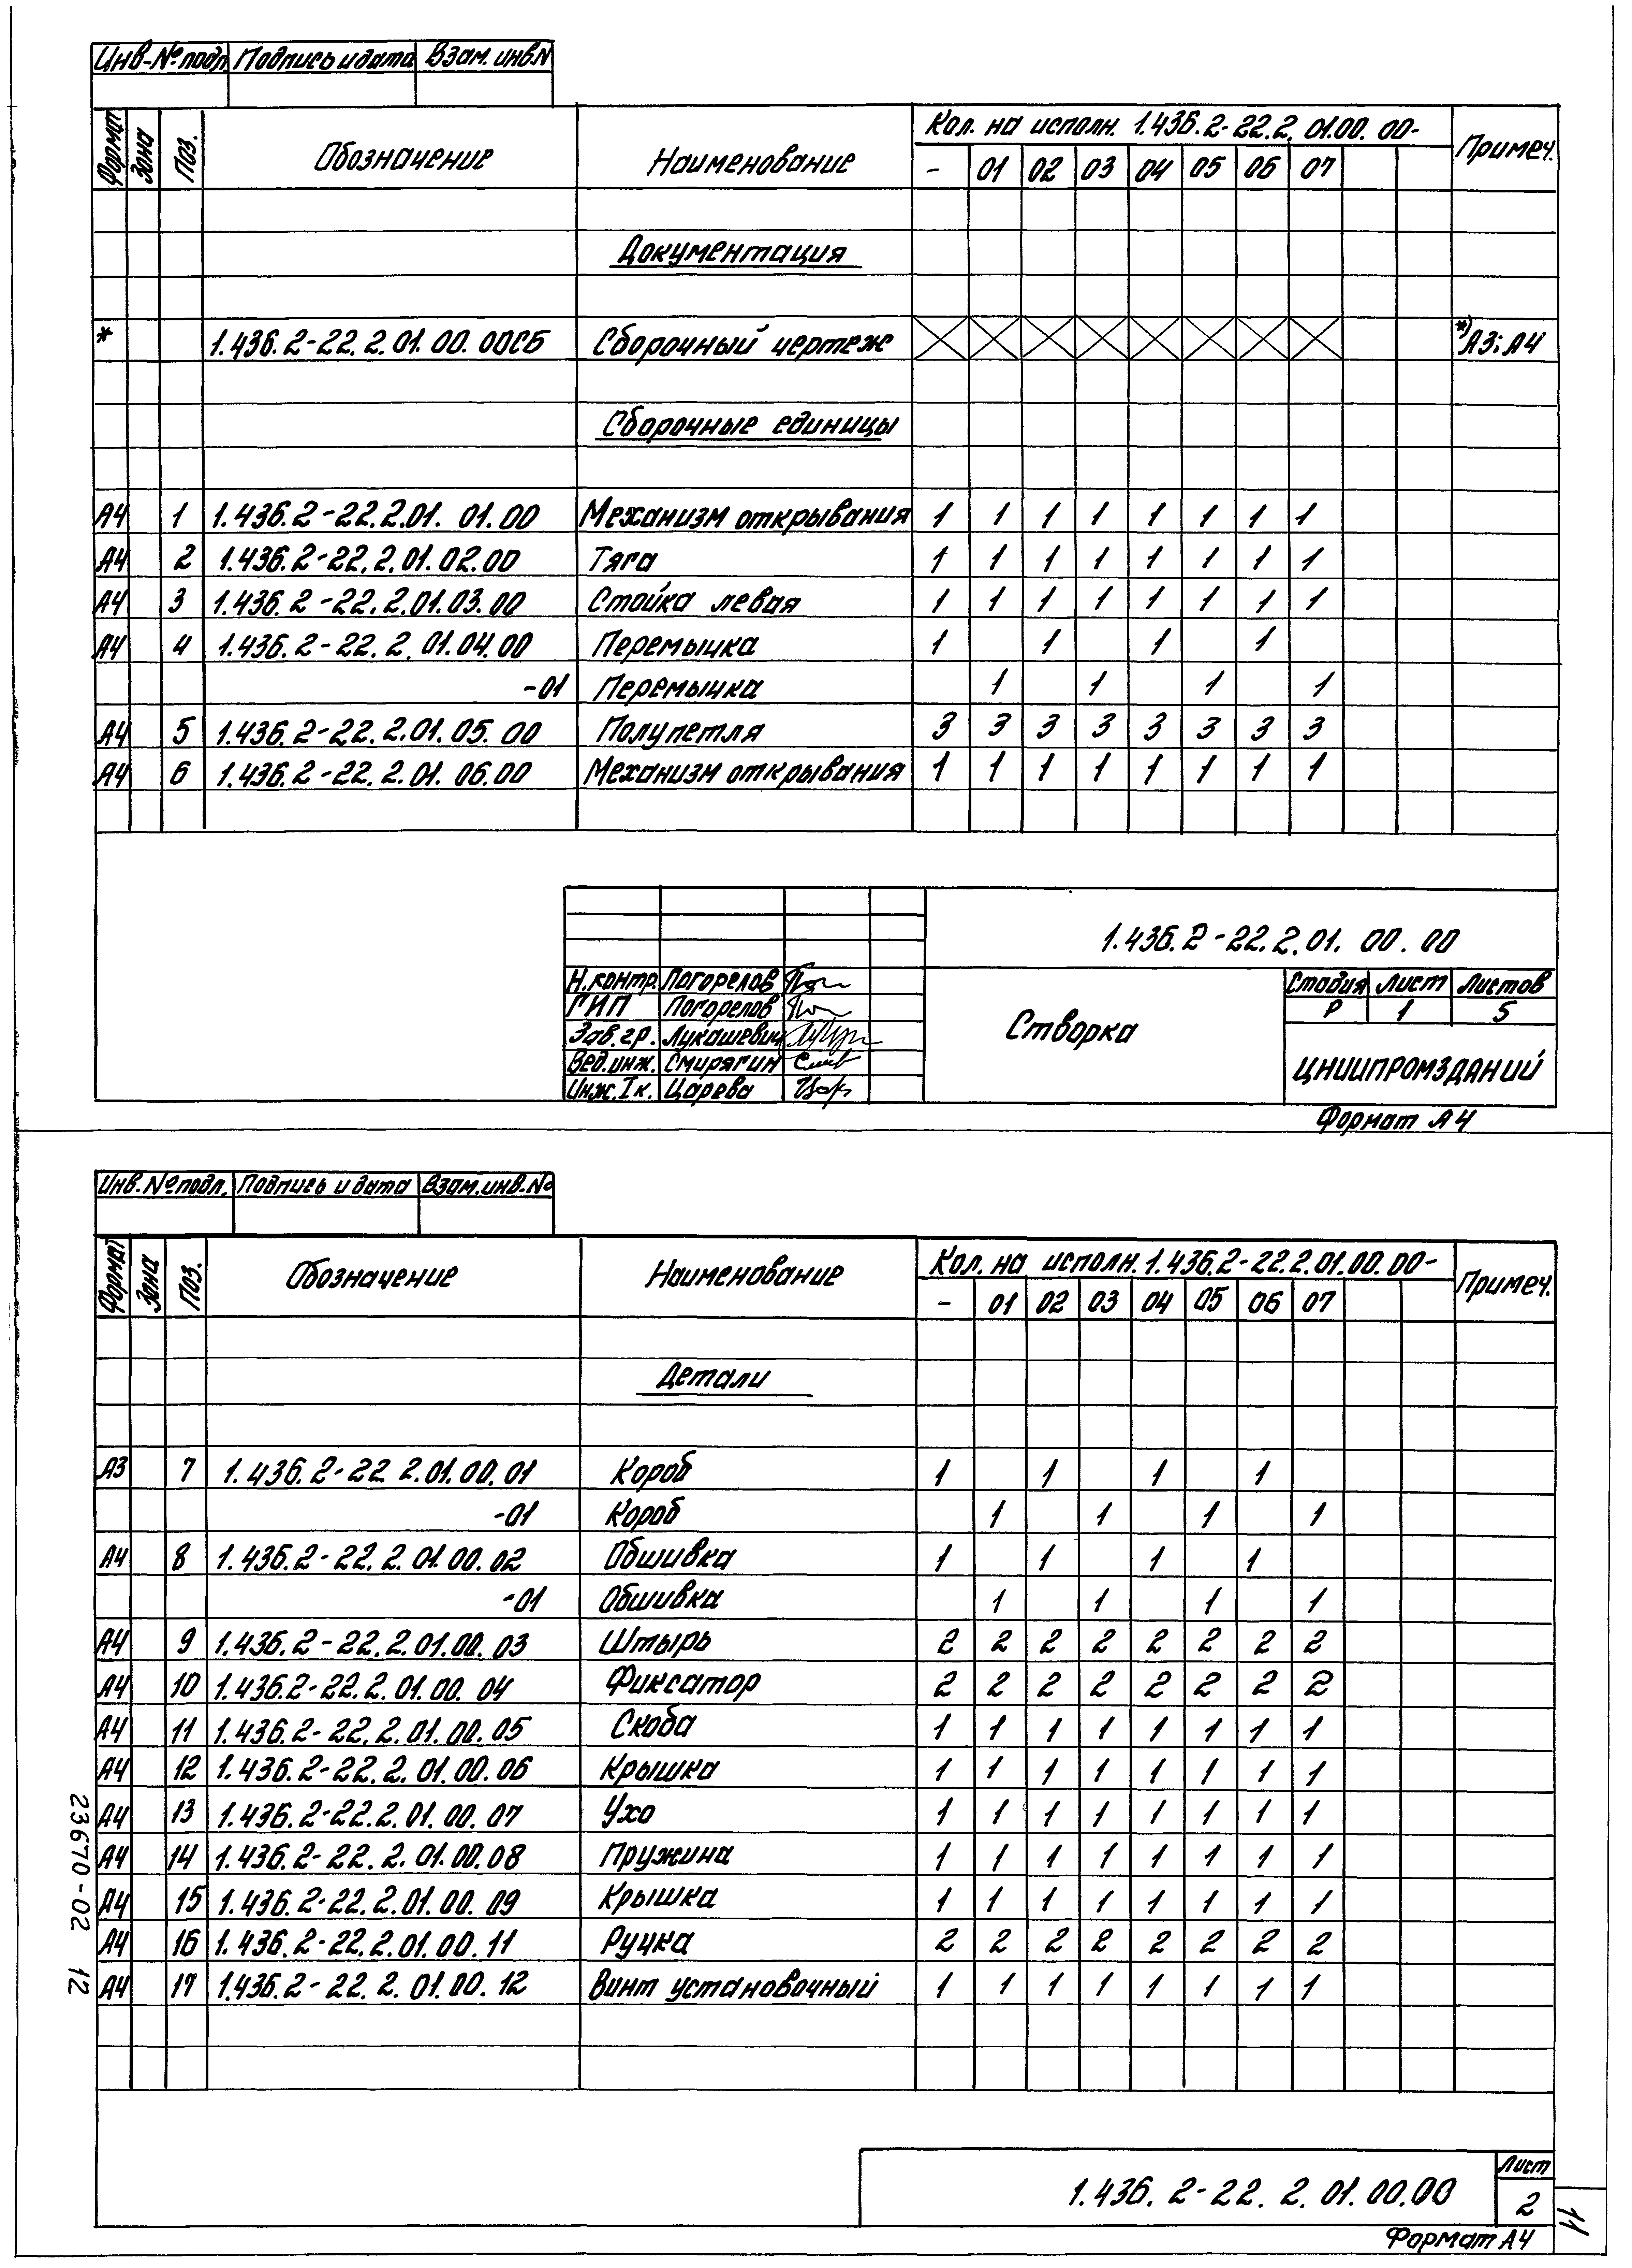 Инв-№подл. Подпись и дата Взам. инв.N
Формат Зона Поз. Обозначение Наименование Кол. на исполн. 1.436.2-22.2.01.00.00- Примеч.
- 01 02 03 04 05 06 07
Документация
* 1.436.2-22.2.01.00.00СБ Сборочный чертеж *) А3; А4
Сборочные единицы
А4 1 1.436.2-22.2.01.01.00 Механизм открывания 1 1 1 1 1 1 1 1
А4 2 1.436.2-22.2.01.02.00 Тяга 1 1 1 1 1 1 1 1
А4 3 1.436.2-22.2.01.03.00 Стойка левая 1 1 1 1 1 1 1 1
А4 4 1.436.2-22.2.01.04.00 Перемычка 1 1 1 1
-01 Перемычка 1 1 1 1
А4 5 1.436.2-22.2.01.05.00 Полупетля 3 3 3 3 3 3 3 3
А4 6 1.436.2-22.2.01.06.00 Механизм открывания 1 1 1 1 1 1 1 1
1.436.2-22.2.01.00.00
Н.контр. Погорелов
ГИП Погорелов
Зав.гр. Лукашевич
Вед.инж. Смирягин
Инж.Iк. Царева
Створка
Стадия Лист Листов
Р 1 5
ЦНИИПРОМЗДАНИЙ
Формат А4
Инв.№подл. Подпись и дата Взам.инв.№
Формат Зона Поз. Обозначение Наименование Кол. на исполн. 1.436.2-22.2.01.00.00- Примеч.
- 01 02 03 04 05 06 07
Детали
А3 7 1.436.2-22 2.01.00.01 Короб 1 1 1 1
-01 Короб 1 1 1 1
А4 8 1.436.2-22.2.01.00.02 Обшивка 1 1 1 1
-01 Обшивка 1 1 1 1
А4 9 1.436.2-22.2.01.00.03 Штырь 2 2 2 2 2 2 2 2
А4 10 1.436.2-22.2.01.00.04 Фиксатор 2 2 2 2 2 2 2 2
А4 11 1.436.2-22.2.01.00.05 Скоба 1 1 1 1 1 1 1 1
А4 12 1.436.2-22.2.01.00.06 Крышка 1 1 1 1 1 1 1 1
А4 13 1.436.2-22.2.01.00.07 Ухо 1 1 1 1 1 1 1 1
А4 14 1.436.2-22.2.01.00.08 Пружина 1 1 1 1 1 1 1 1
А4 15 1.436.2-22.2.01.00.09 Крышка 1 1 1 1 1 1 1 1
А4 16 1.436.2-22.2.01.00.11 Ручка 2 2 2 2 2 2 2 2
А4 17 1.436.2-22.2.01.00.12 Винт установочный 1 1 1 1 1 1 1 1
23670-02 12
1.436.2-22.2.01.00.00
Лист
2
11
Формат А4